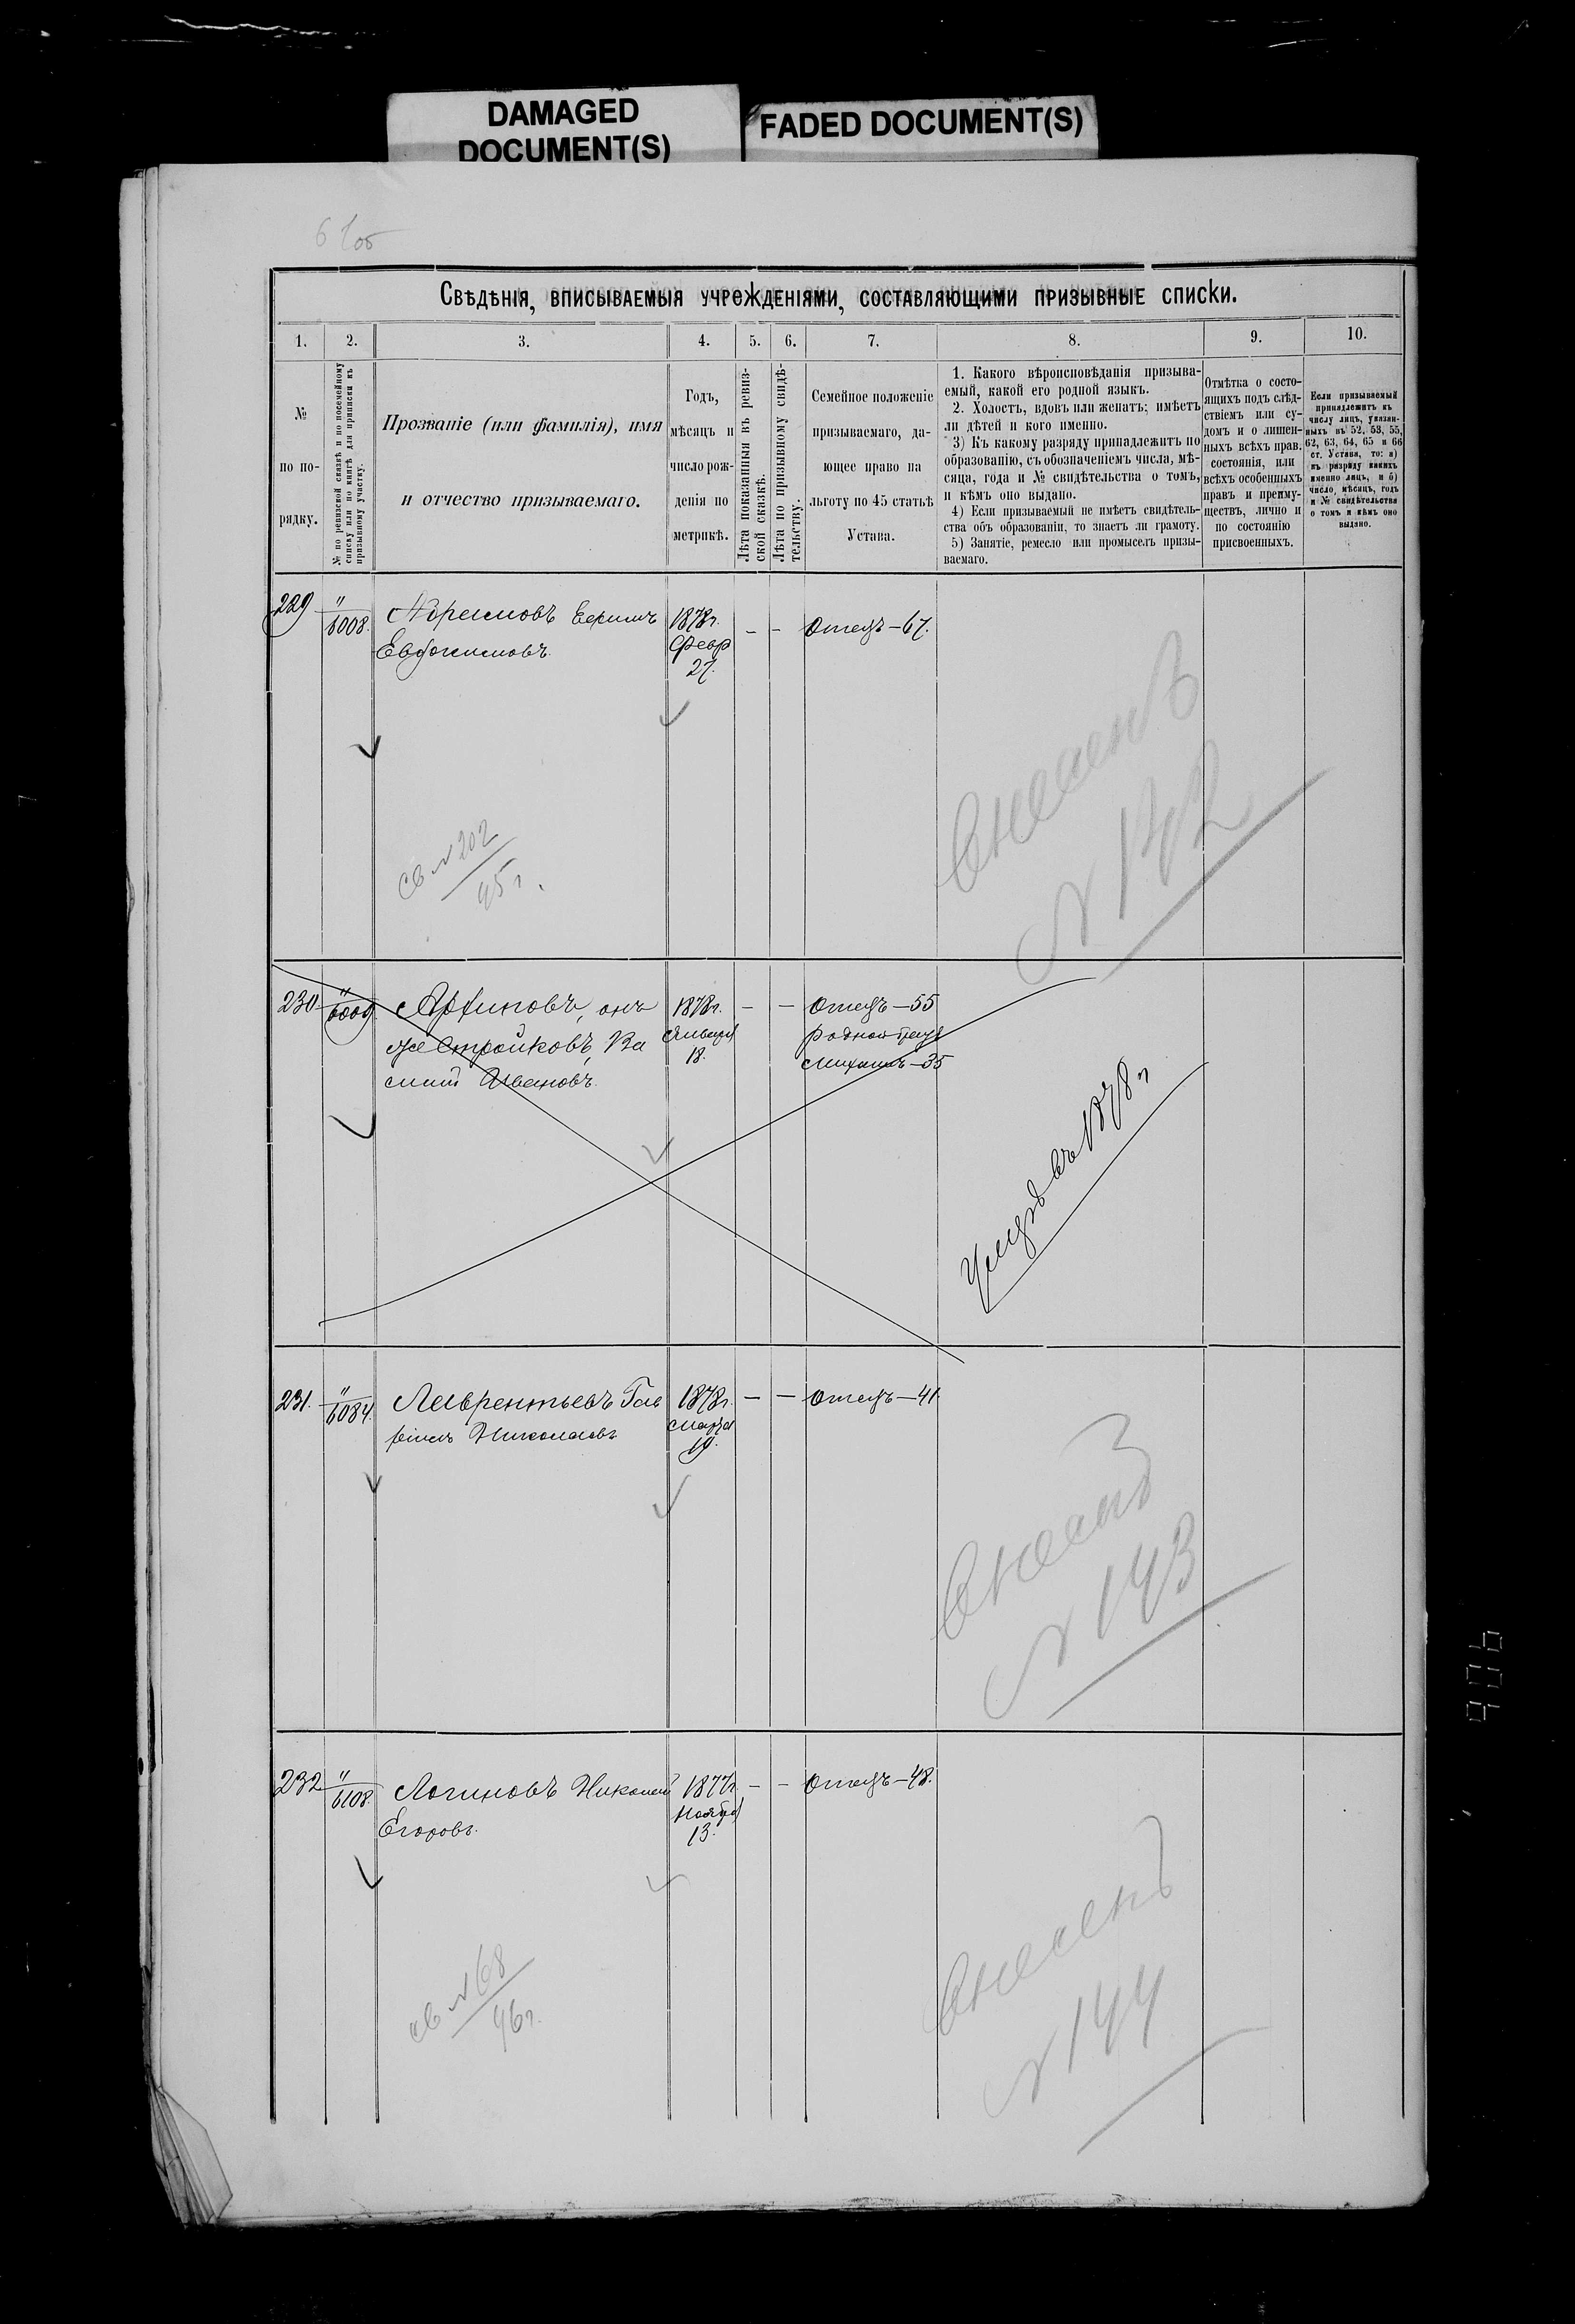 DAMAGED
DOCUMENT(S)
FADED DOCUMENT(S)
Свѣдѣнія, вписываемыя учрежденіями, составляющими призывные списки.
1. 2. 3. 4. 5. 6. 7. 8. 9. 10.
№
по по-
рядку.
№ по ревизской сказкѣ и по посемейному
списку или по книгѣ для приписки къ
призывному участку.
Прозваніе (или фамилія), имя
и отчество призываемаго.
Годъ,
мѣсяцъ и
число рож-
денія по
метрикѣ.
Лѣта показанныя въ ревиз-
ской сказкѣ.
Лѣта по призывному свидѣ-
тельству.
Семейное положеніе
призываемаго, да-
ющее право на
льготу по 45 статьѣ
Устава.
1. Какого вѣроисповѣданія призыва-
емый, какой его родной языкъ.
2. Холостъ, вдовъ или женатъ; имѣетъ
ли дѣтей и кого именно.
3) Къ какому разряду принадлежитъ по
образованію, съ обозначеніемъ числа, мѣ-
сяца, года и № свидѣтельства о томъ,
и кѣмъ оно выдано.
4) Если призываемый не имѣетъ свидѣтель-
ства объ образованіи, то знаетъ ли грамоту.
5) Занятіе, ремесло или промыселъ призы-
ваемаго.
Отмѣтка о состо-
ящихъ подъ слѣд-
ствіемъ или су-
домъ и о лишен-
ныхъ всѣхъ прав.
состоянія, или
всѣхъ особенныхъ
правъ и преиму-
ществъ, лично и
по состоянію
присвоенныхъ.
Если призываемый
принадлежитъ къ
числу лицъ, указан-
ныхъ въ 52, 53, 55,
62, 63, 64, 65 и 66
ст. Устава, то: а)
къ разряду какихъ
именно лицъ, и б)
число, мѣсяцъ, годъ
и № свидѣтельства
о томъ и кѣмъ оно
выдано.
229 " 6008. Ефимъ 1878г. – – Отецъ–67.
Евдокимовъ Февр
27.
Внесенъ
св №202
95г.
230 " 6009 онъ 1878г. – – Отецъ–55
же Стройковъ, Ва Января родной братъ
силій Ивановъ 18. Михаилъ–35
1878г
231. " 6084. Лаврентьевъ Гав 1878г. – – Отецъ–41.
ріилъ Николаевъ Марта
19.
Внесенъ
№ 143
232 " 6108. Логиновъ Николай 1877г. – – Отецъ–48.
Егоровъ. Ноября
13.
Внесенъ
№ 144
св №68
96г.
906